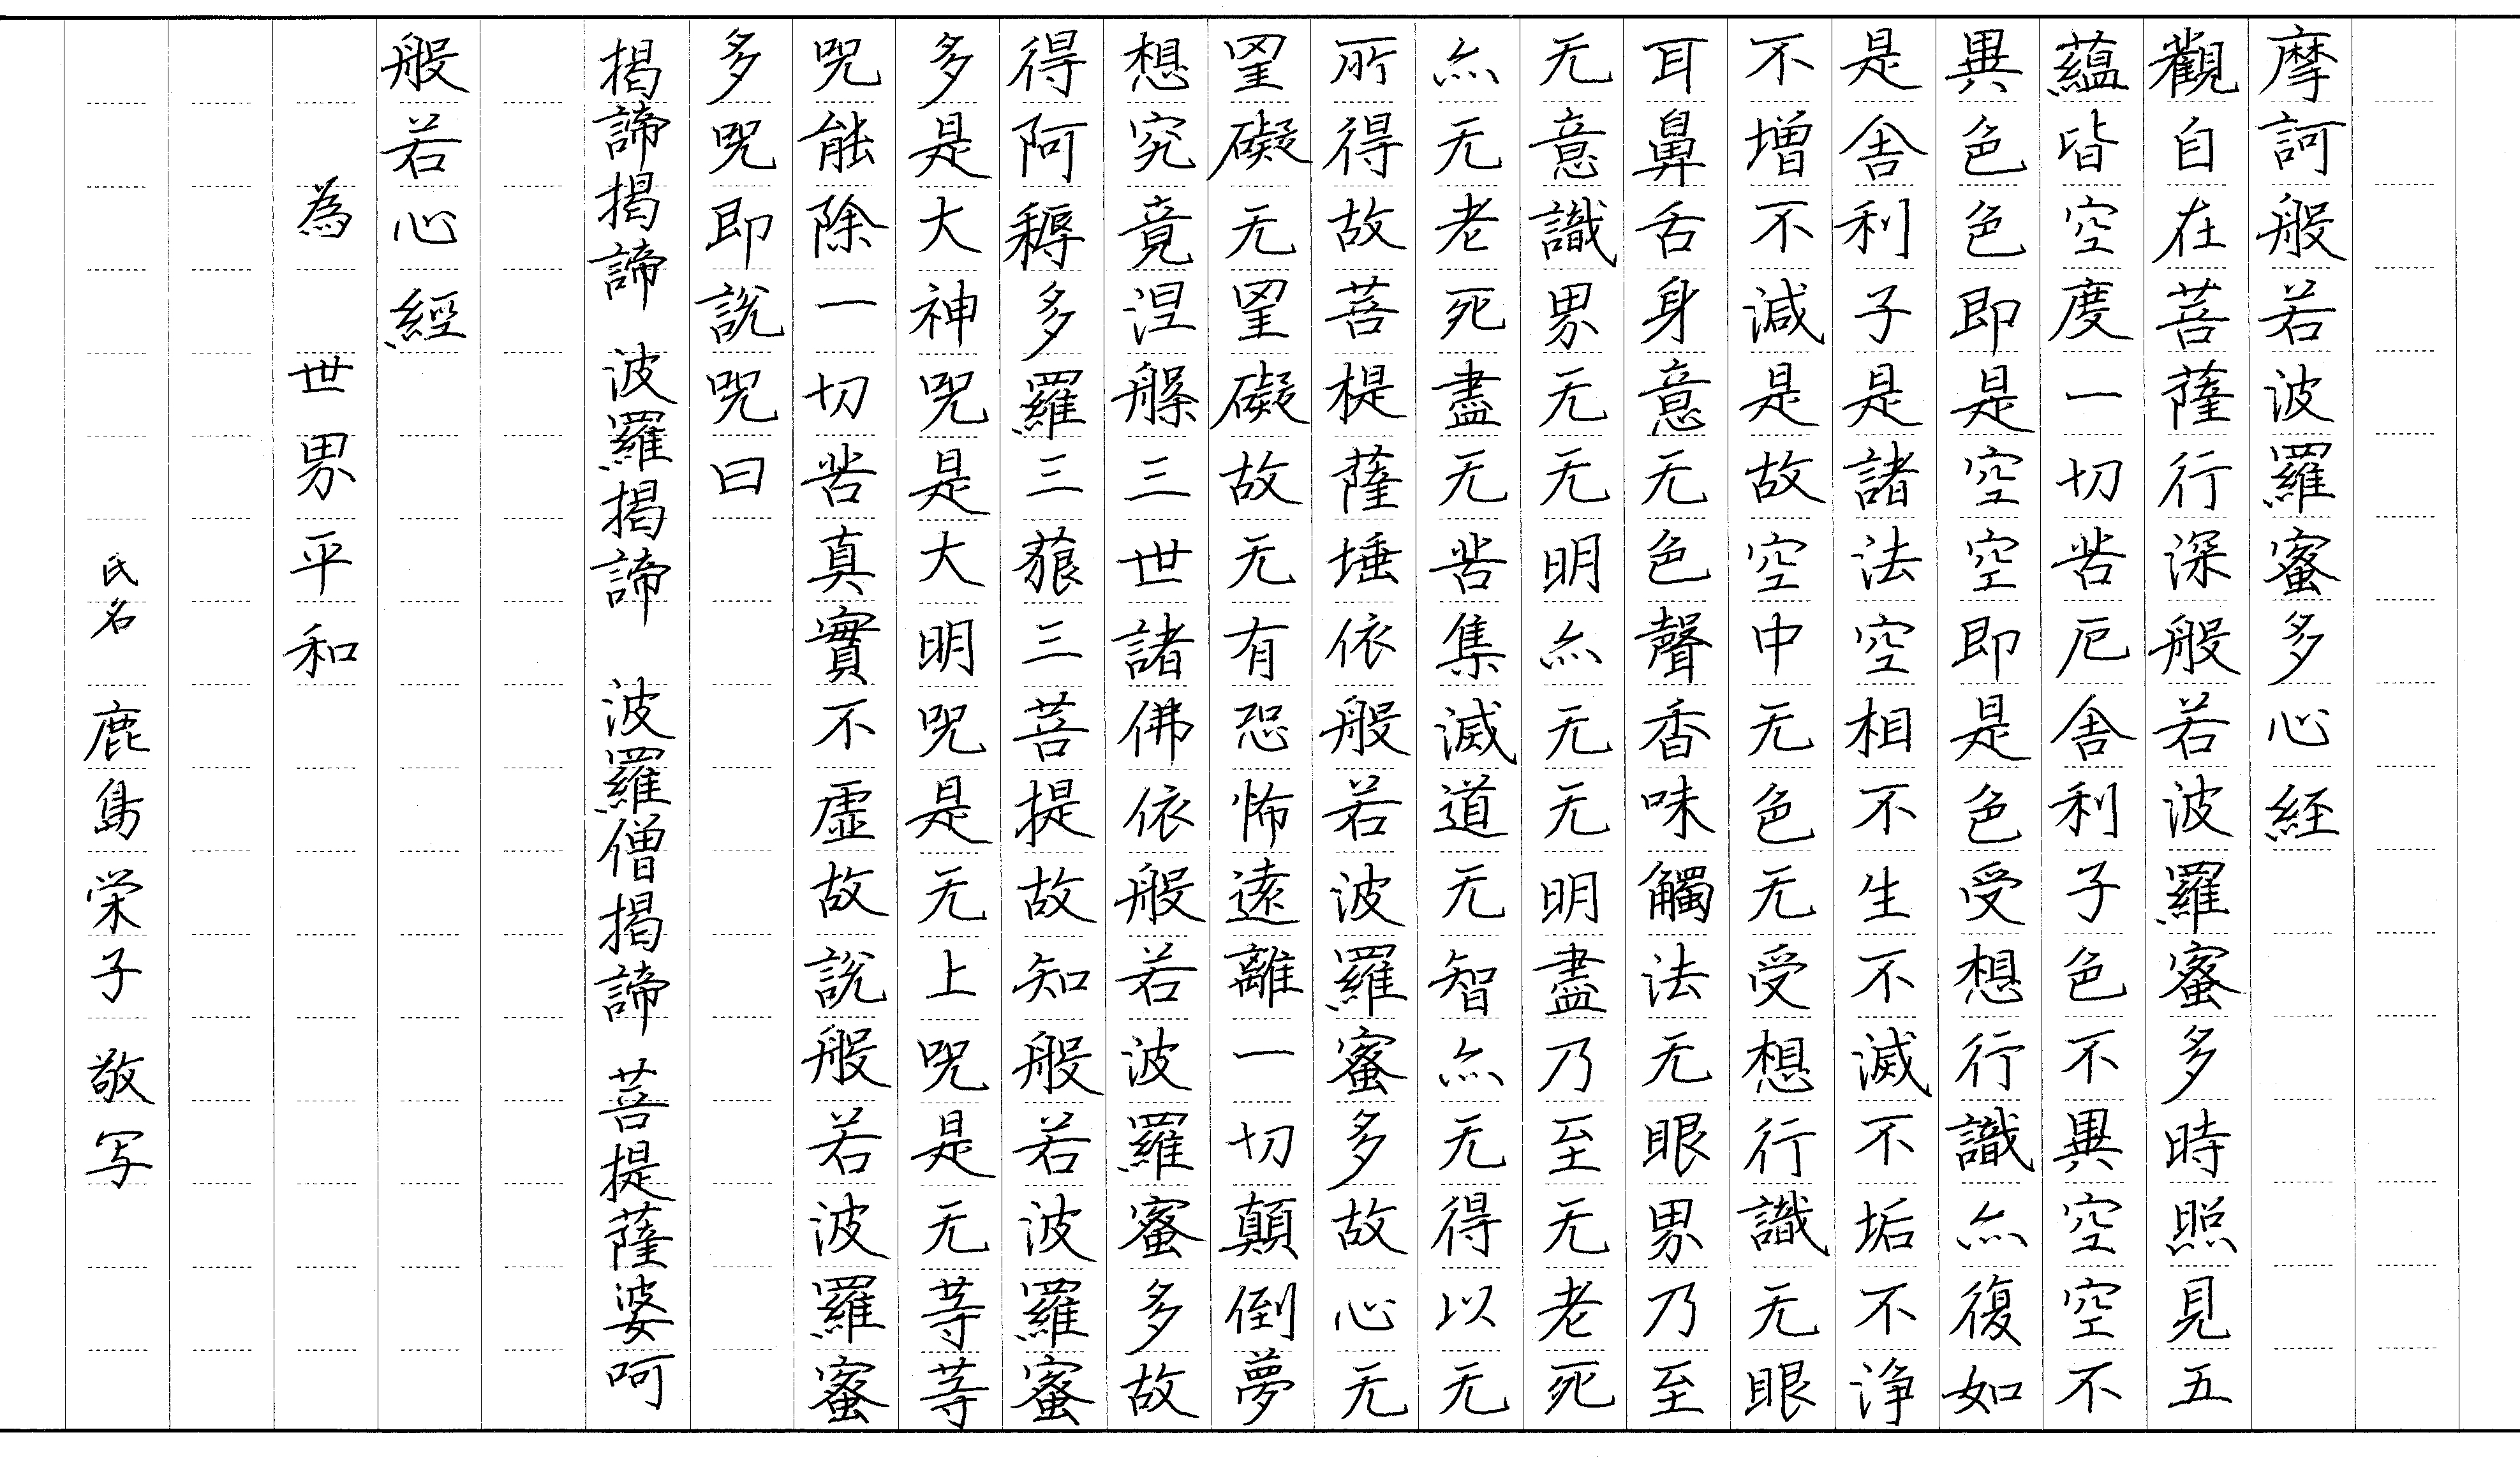 摩訶般若波羅蜜多心経
觀自在菩薩行深般若波羅蜜多時照見五
蘊皆空度一切苦厄舎利子色不異空空不
異色色即是空空即是色受想行識亦復如
是舎利子是諸法空相不生不滅不垢不浄
不増不減是故空中无色无受想行識无眼
耳鼻舌身意无色聲香味觸法无眼界乃至
无意識界无无明亦无无明盡乃至无老死
亦无老死盡无苦集滅道无智亦无得以无
所得故菩提薩埵依般若波羅蜜多故心无
罣礙无罣礙故无有恐怖遠離一切顛倒夢
想究竟涅槃三世諸佛依般若波羅蜜多故
得阿耨多羅三藐三菩提故知般若波羅蜜
多是大神咒是大明咒是无上咒是无等等
咒能除一切苦真實不虚故説般若波羅蜜
多咒即説咒曰
揭諦揭諦 波羅揭諦 波羅僧揭諦 菩提薩婆呵
般若心經
為 世界平和
氏名 鹿島栄子敬写